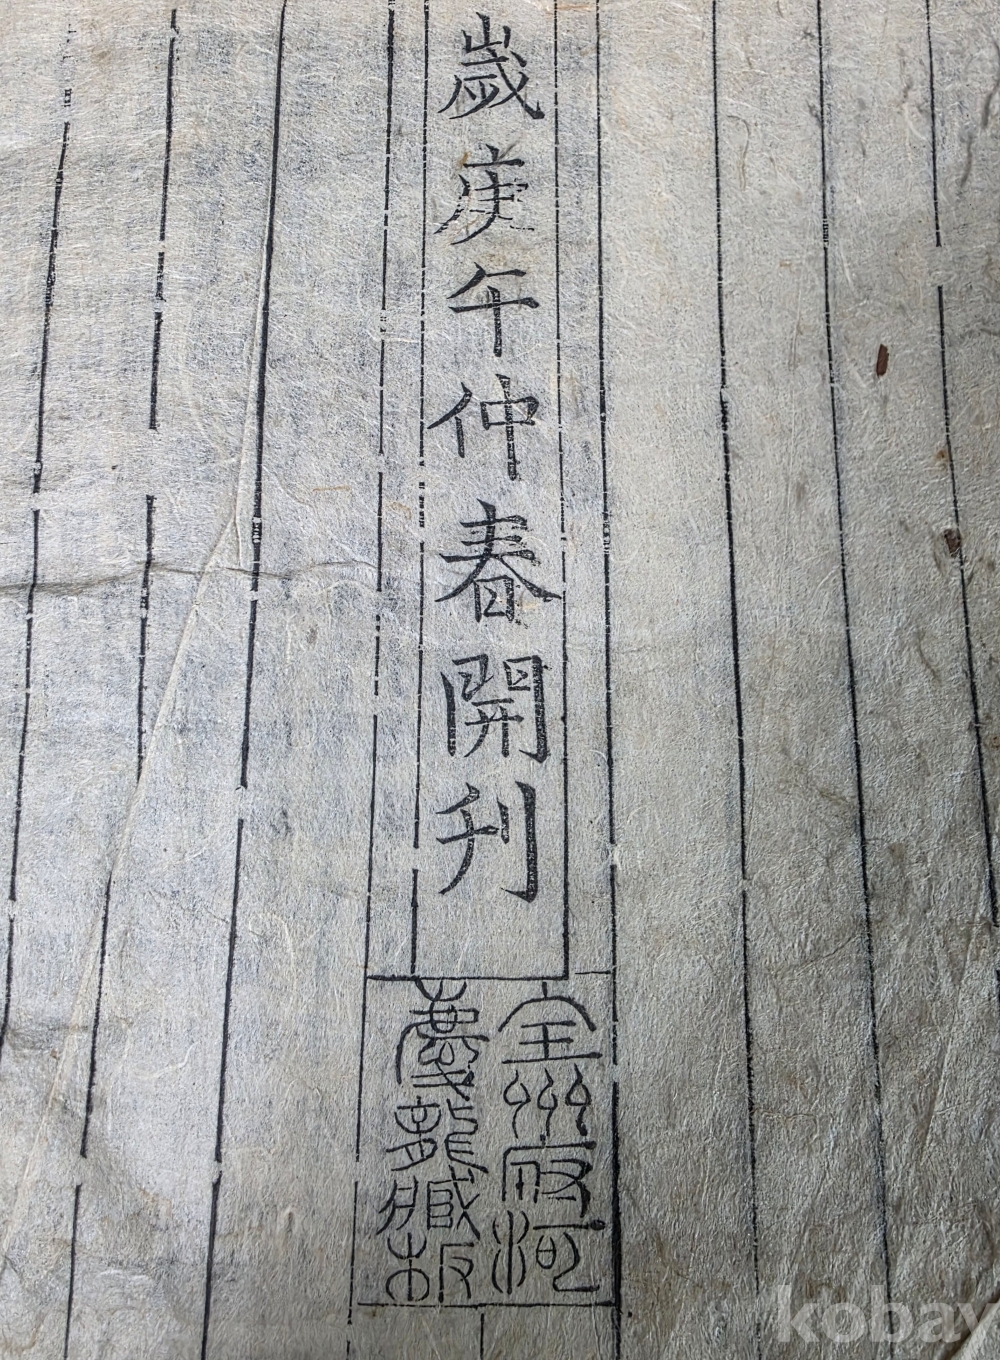 歲庚午仲春開刊
全州府河
慶龍藏板
kobay